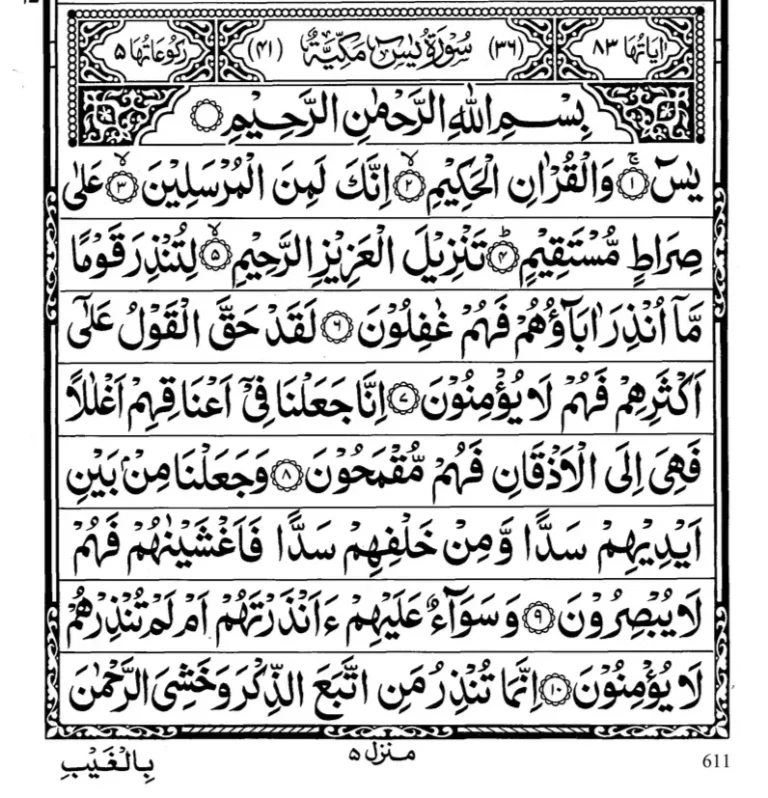 اٰيَاتُهَا ٨٣ (٣٦) سُوْرَةُ يٰسٓ مَكِّيَّةٌ (٤١) رُكُوْعَاتُهَا ٥
بِسْمِ اللّٰهِ الرَّحْمٰنِ الرَّحِيْمِ
يٰسٓ ۝١ وَالْقُرْاٰنِ الْحَكِيْمِ ۝٢ اِنَّكَ لَمِنَ الْمُرْسَلِيْنَ ۝٣ عَلٰى
صِرَاطٍ مُّسْتَقِيْمٍ ۝٤ تَنْزِيْلَ الْعَزِيْزِ الرَّحِيْمِ ۝٥ لِتُنْذِرَ قَوْمًا
مَّاۤ اُنْذِرَ اٰبَآؤُهُمْ فَهُمْ غٰفِلُوْنَ ۝٦ لَقَدْ حَقَّ الْقَوْلُ عَلٰۤى
اَكْثَرِهِمْ فَهُمْ لَا يُؤْمِنُوْنَ ۝٧ اِنَّا جَعَلْنَا فِيْۤ اَعْنَاقِهِمْ اَغْلٰلًا
فَهِيَ اِلَى الْاَذْقَانِ فَهُمْ مُّقْمَحُوْنَ ۝٨ وَجَعَلْنَا مِنْۢ بَيْنِ
اَيْدِيْهِمْ سَدًّا وَّمِنْ خَلْفِهِمْ سَدًّا فَاَغْشَيْنٰهُمْ فَهُمْ
لَا يُبْصِرُوْنَ ۝٩ وَسَوَآءٌ عَلَيْهِمْ ءَاَنْذَرْتَهُمْ اَمْ لَمْ تُنْذِرْهُمْ
لَا يُؤْمِنُوْنَ ۝١٠ اِنَّمَا تُنْذِرُ مَنِ اتَّبَعَ الذِّكْرَ وَخَشِيَ الرَّحْمٰنَ
611 منزل ٥ بِالْغَيْبِ